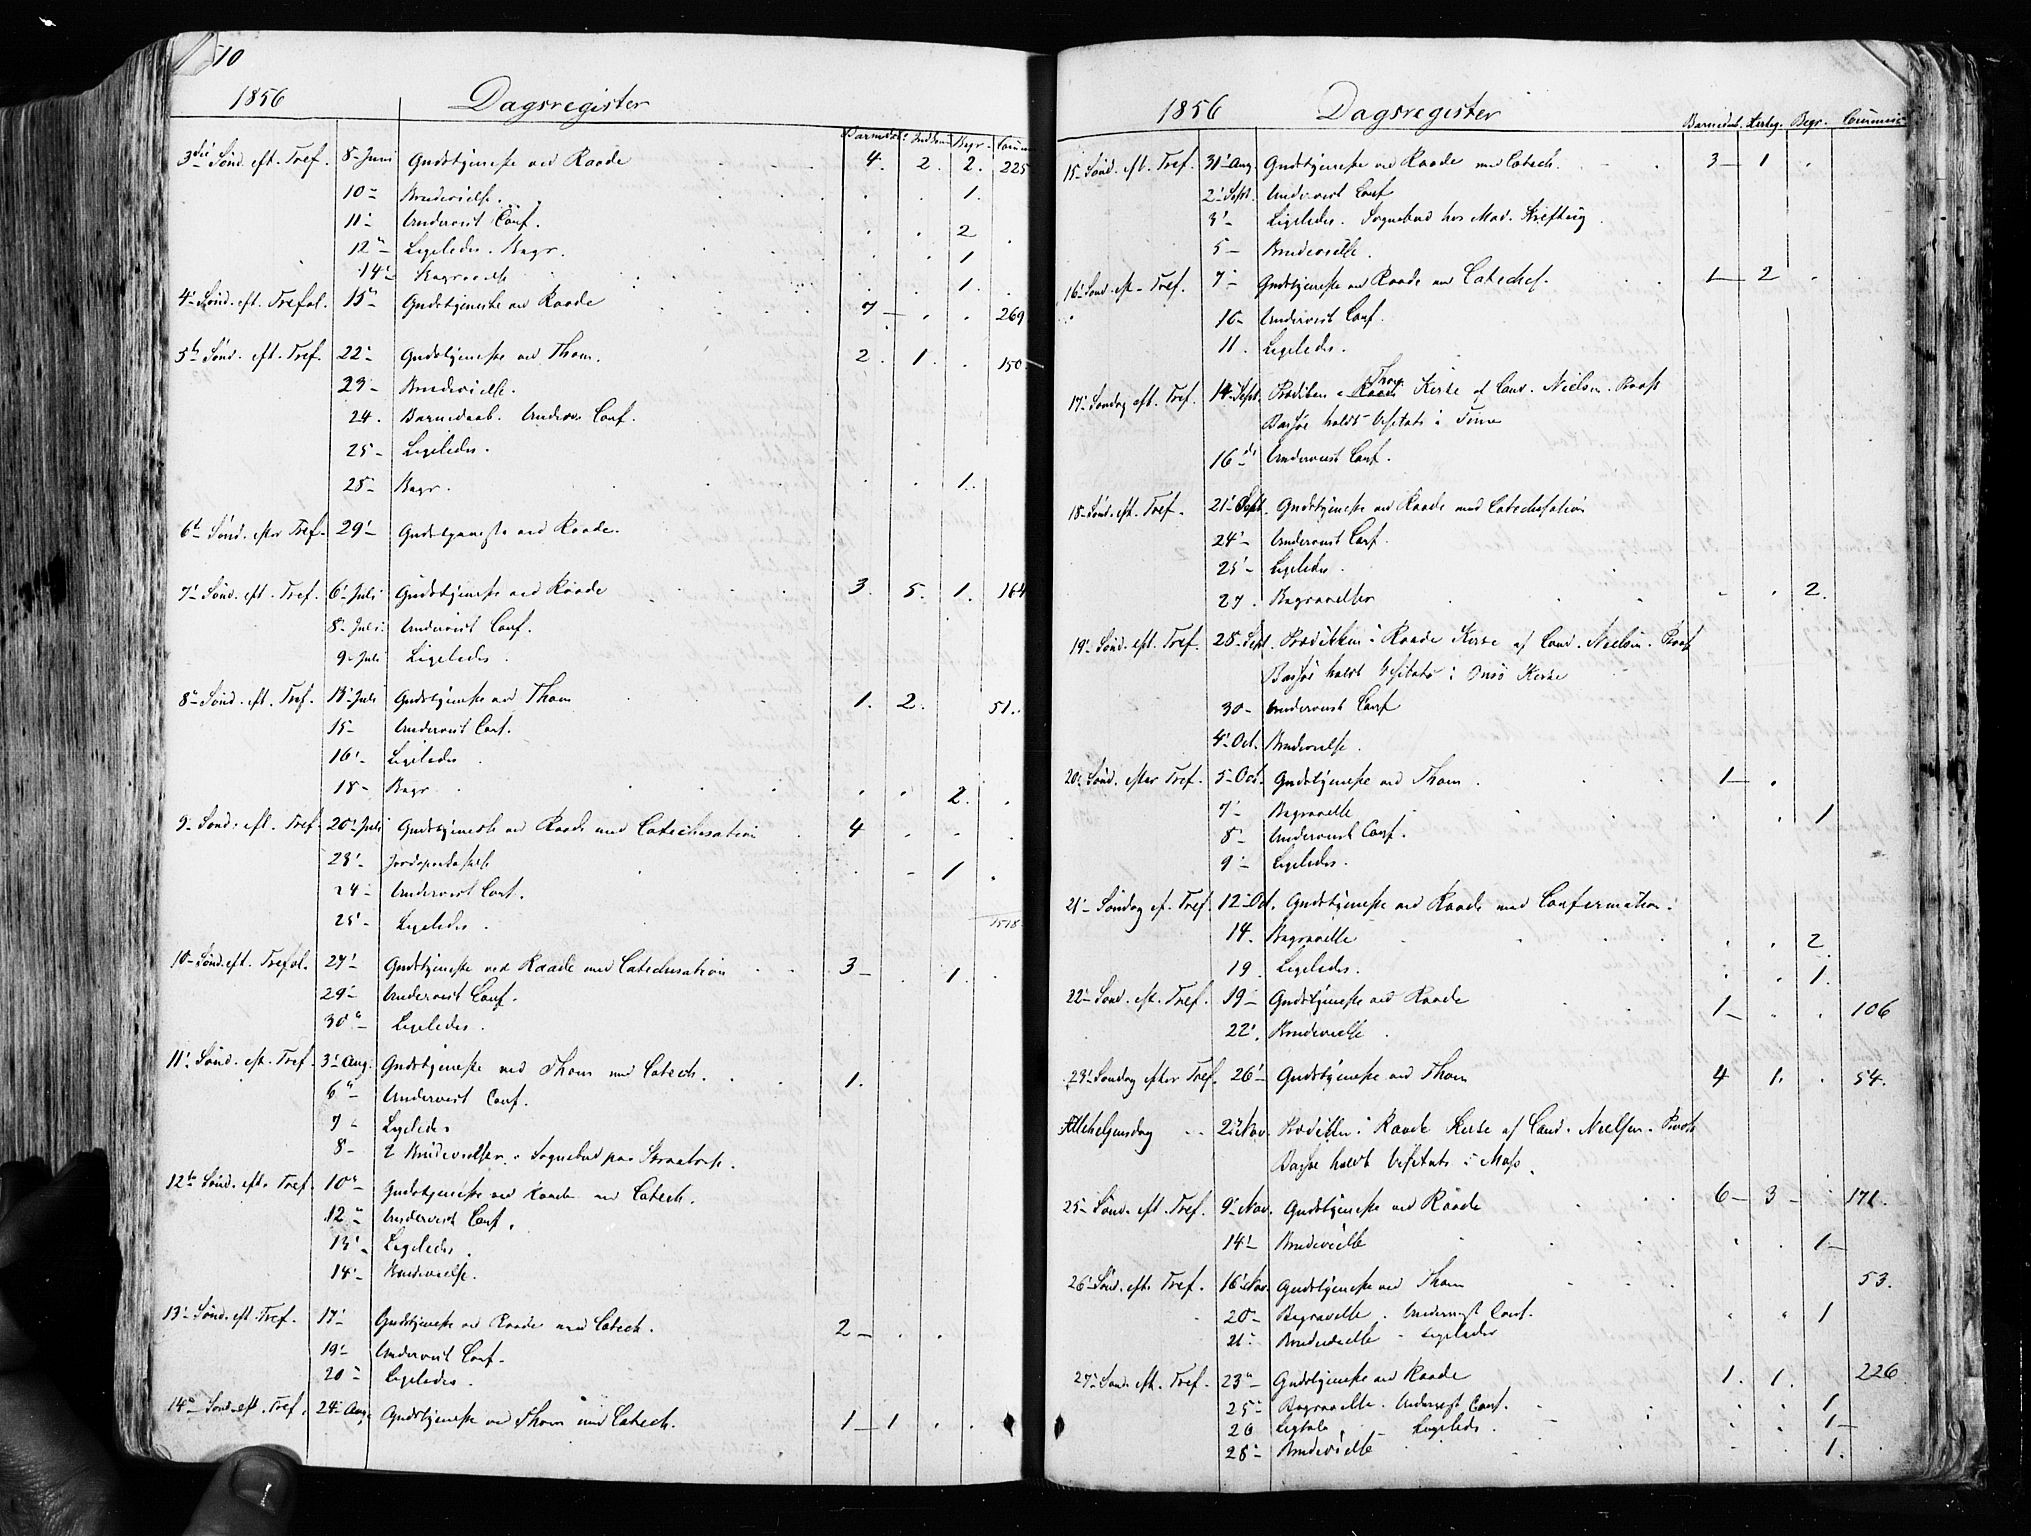 510
1856 Dagsregister
Barnedåb. Indled. Begr. Comm
3die Sønd. eft. Tref. 8- Juni Gudstjeneste ved Raade 4. 2. 2. 225
10- Brudevielse. 1.
11- Undervist Conf. 2
12- Ligeledes. Begr. 1
14- Begravelse 1.
4- Sønd. eft. Trefol. 15- Gudstjeneste ved Raade 7 269
5te Sønd. eft. Tref. 22- Gudstjeneste ved Thom. 2. 1. 150
23- Brudevielse.
24. Barnedaab. Underv. Conf.
25- Ligeledes.
28- Begr. 1.
6te Sønd. efter Tref. 29- Gudstjeneste ved Raade.
7- Sønd. eft. Tref. 6- Juli Gudstjeneste ved Raade 3. 5. 1. 164
8- Juli. Undervist Conf.
9- Juli Ligeledes.
8- Sønd. eft. Tref. 13- Juli Gudstjeneste ved Thom 1. 2. 51.
15- Undervist Conf.
16- Ligeledes
18- Begr 2.
9- Sønd. eft. Tref. 20- Juli Gudstjeneste ved Raade med Catechesation 4
23- Jordspaakastelse 1
24- Undervist Conf.
25- Ligeledes. 1518
10- Sønd. eft. Trefol. 27- Gudstjeneste ved Raade med Catechesation 3 1.
29- Undervist Conf.
30- Ligeledes.
11- Sønd. eft. Tref. 3- Aug. Gudstjeneste ved Thom med Catech. 1.
6- Undervist Conf.
7- Ligeledes
8- 2 Brudevielser. Sognebud paa
12te Sønd. eft. Tref. 10- Gudstjeneste ved Raade med Catech.
12- Undervist Conf.
13- Ligeledes.
14- Brudevielse.
13- Sønd. eft. Tref. 17- Gudstjeneste ved Raade med Catech. 2
19- Undervist Conf.
20- Ligeledes.
14- Sønd. eft. Tref. 24- Aug. Gudstjeneste ved Thom med Catech. 1 1
1856 Dagsregister
Barnedaab. Begr. Commun
15- Sønd. eft. Tref. 31- Aug. Gudstjeneste ved Raade med Catech. 3 1
2- Sept. Undervist Conf
3- Ligeledes. Sognebud hos Mad. Krefting
5- Brudevielse.
16- Sønd. eft. Tref. 7- Gudstjeneste ved Raade med Cateches. 1 2
10- Undervist Conf.
11. Ligeledes.
17- Søndag eft. Tref. 14- Sept. Prædiken i Thom Kirke af Cand. Nielsen. Provst
Bassøe holdt Visitats i
16de Undervist Conf.
18- Sønd. eft. Tref. 21- Sept. Gudstjeneste ved Raade med Catechesation
24- Undervist Conf.
25- Ligeledes
27. Begravelser 2.
19- Sønd. eft. Tref. 28- Sept. Prædiken i Raade Kirke af Cand. Nielsen. Provst
Bassøe holdt Visitats i Onsø Kirke
30- Undervist Conf
4- Oct. Brudevielse.
20- Sønd. efter Tref. 5- Oct. Gudstjeneste ved Thom. 1
7- Begravelse 1
8- Undervist Conf.
9- Ligeledes.
21- Søndag ef. Tref. 12- Oct. Gudstjeneste ved Raade med Confirmation.
14. Begravelse 2
19. Ligeledes. 1.
22- Sønd. eft. Tref. 19- Gudstjeneste ved Raade 1 106
22- Brudevielse
23- Søndag efter Tref. 26- Gudstjeneste ved Thom 4 1. 54.
Allehelgensdag 2- Nov. Prædiken i Raade Kirke af Cand. Nielsen. Provst
Bassøe holdt Visitats i Moss
25- Sønd. eft. Tref. 9- Nov. Gudstjeneste ved Raade 6 3 171.
14- Brudevielse 1
26- Sønd. eft. Tref. 16- Nov. Gudstjeneste ved Thom 53.
20- Begravelse. Undervist Conf. 1
21- Brudevielse - Ligeledes
27- Sønd. eft. Tref. 23- Gudstjeneste ved Raade 1. 1. 226
25- Begravelse. Undervist Conf. 1
26 Ligtale - Ligeledes. 1
28- Brudevielse 1.